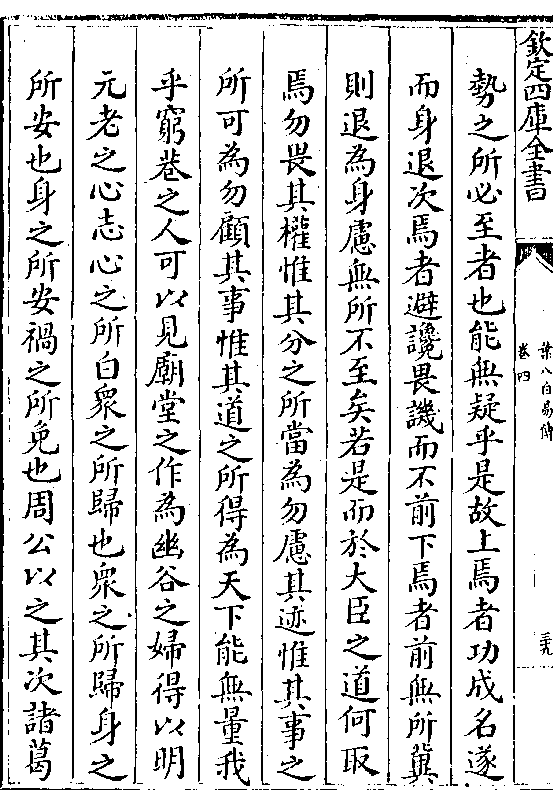 欽定四庫全書
葉八白易傳
卷四
三九
勢之所必至者也能無疑乎是故上焉者功成名遂
而身退次焉者避讒畏譏而不前下焉者前無所冀
則退為身慮無所不至矣若是而於大臣之道何取
焉勿畏其權惟其分之所當為勿慮其迹惟其事之
所可為勿顧其事惟其道之所得為天下能無量我
乎窮巷之人可以見廟堂之作為幽谷之婦得以明
元老之心志心之所白衆之所歸也衆之所歸身之
所安也身之所安禍之所免也周公以之其次諸葛